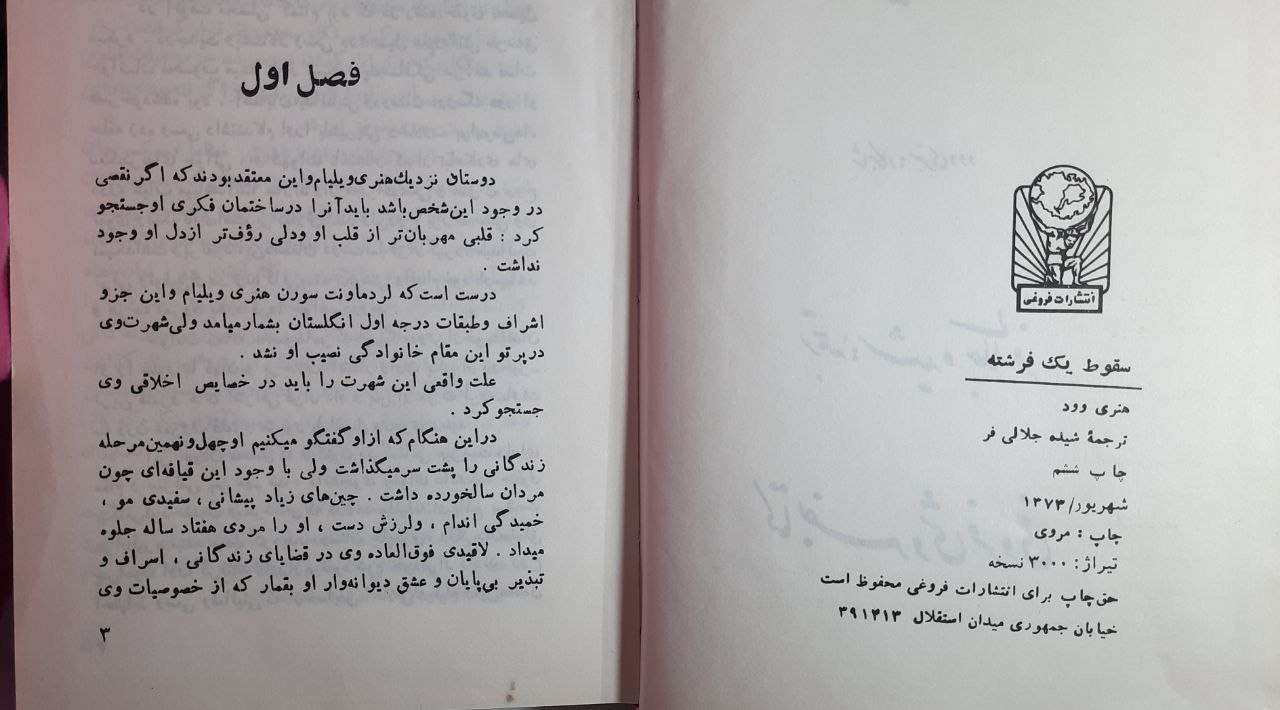 انتشارات فروغی
سقوط یک فرشته
هنری وود
ترجمهٔ شیده جلالی فر
چاپ ششم
شهریور/۱۳۷۳
چاپ : مروی
تیراژ: ۳۰۰۰ نسخه
حق‌چاپ برای انتشارات فروغی محفوظ است
خیابان جمهوری میدان استقلال ۳۹۱۴۱۳
فصل اول
دوستان نزدیك هنری ویلیام واین معتقد بودند که اگر نقصی
در وجود این‌شخص باشد باید آنرا درساختمان فکری او جستجو
کرد : قلبی مهربان‌تر از قلب او ودلی رؤف‌تر ازدل او وجود
نداشت .
درست است که لردماونت سورن هنری ویلیام واین جزو
اشراف وطبقات درجه اول انگلستان بشمارمیامد ولی‌شهرت‌وی
درپرتو این مقام خانوادگی نصیب او نشد .
علت واقعی این شهرت را باید در خصایص اخلاقی وی
جستجو کرد .
دراین هنگام که ازاو گفتگو میکنیم او چهل‌و نهمین مرحله
زندگانی را پشت سرمیگذاشت ولی با وجود این قیافه‌ای چون
مردان سالخورده داشت . چین‌های زیاد پیشانی ، سفیدی مو ،
خمیدگی اندام ، ولرزش دست ، او را مردی هفتاد ساله جلوه
میداد . لاقیدی فوق‌العاده وی در قضایای زندگانی ، اسراف و
تبذیر بی‌پایان و عشق دیوانه‌وار او بقمار که از خصوصیات وی
۳